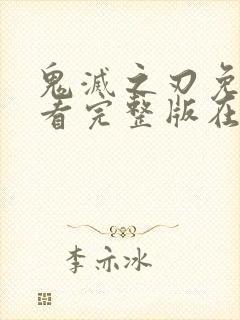 鬼灭之刃免
看完整版在
李亦冰